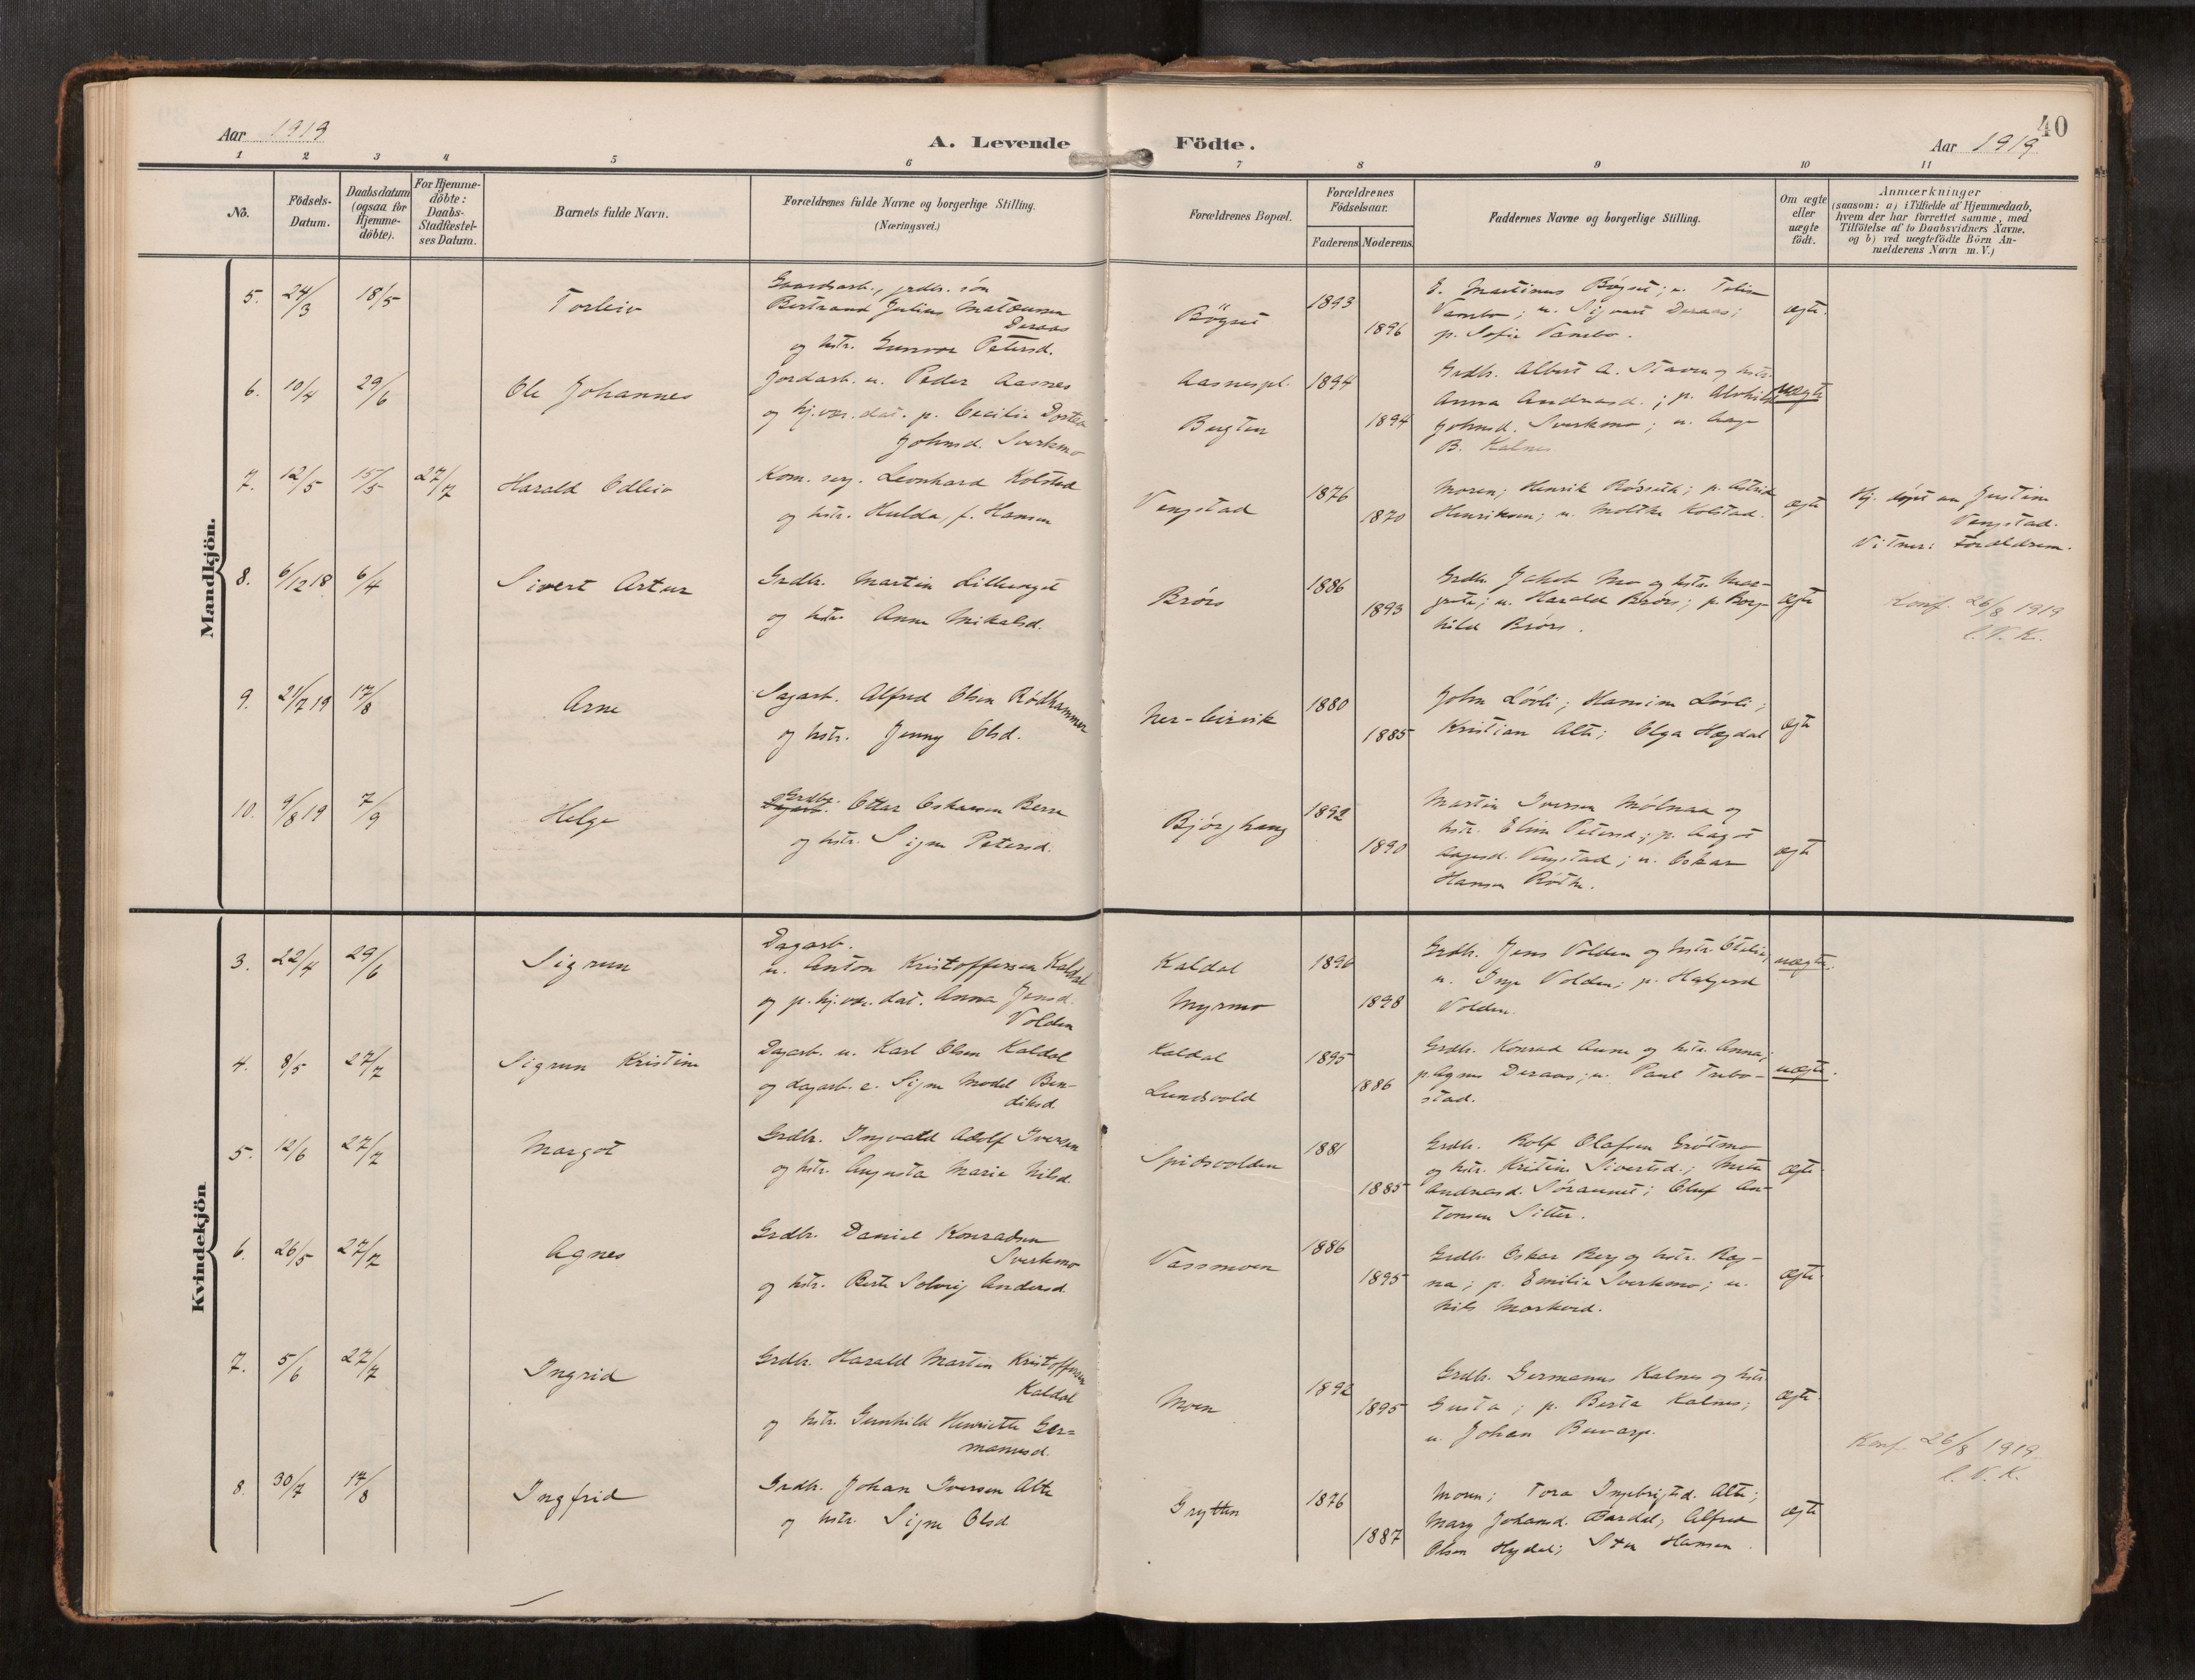 40
Aar 1919
A. Levende Födte.
Aar 1919
1 2 3 4 5 6 7 8 9 10 11
No.
Födsels-
Datum.
Daabsdatum
(ogsaa for
Hjemme-
döbte).
For Hjemme-
döbte:
Daabs-
Stadfæstel-
ses Datum.
Barnets fulde Navn.
Forældrenes fulde Navne og borgerlige Stilling.
(Næringsvei.)
Forældrenes Bopæl.
Forældrenes
Födselsaar.
Faderens
Moderens
Faddernes Navne og borgerlige Stilling.
Om ægte
eller
uægte
födt.
Anmærkninger
(saasom: a) i Tilfælde af Hjemmedaab,
hvem der har forrettet samme, med
Tilföielse af to Daabsvidners Navne,
og b) ved uægtefödte Börn An-
melderens Navn m. V.)
Mandkjön.
5. 24/3 18/5
Torleiv
Gaardsarb., grdbr. sön
Bertrand Julius
Deraas
og hstr. Gunvor Petersd.
Bögset
1893
1896
Martinus Bögset;
Vambo; u. Sigvart Deraas;
p. Sofie Vambo.
ægte.
6. 10/4 29/6
Ole Johannes
Jordarb. u. Peder Aasnes
og hj.vær. dat. p. Cecilie
Johnsd. Sverkmo
Aasnespl.
Bugten
1894
1894
Grdbr. Albert A. Staven og hstr.
Anna Andreasd.; p. Alvhild
Johnsd. Sverkmo; u. Aage
B. Kalnes
uægte
7. 12/5 15/5 27/7
Harald Odleiv
Kom. ing. Leonhard Kolstad
og hstr. Hulda, f. Hansen
Vengstad
1876
1870
Moren; Henrik; p. Astrid
Henriksen; u. Moltke Kolstad.
ægte
Hj. døpt av Justine
Vengstad.
Vitner: Forældrene.
8. 6/12 18 6/4
Sivert Artur
Grdbr. Martin Lillenget
og hstr. Anne Mikalsd.
Brörs
1886
1893
Grdbr. Jakob Mo og hstr. Mar-
grete; u. Harald Brörs; p. Borg-
hild Brörs.
ægte
Konf. 26/8 1919
C. V. K.
9. 21/7 19 17/8
Arne
Sagarb. Alfred Olsen Rödhammer
og hstr. Jenny Olsd.
Ner-Leirvik
1880
1885
John Lövli; Hansine Lövli;
Kristian Alte; Olga Hegdal
ægte
10. 9/8 19 7/9
Helge
Grdbr.
Dagarb. Ottar Oskarsen Berre
og hstr. Signe Petersd.
Bjørghaug
1892
1890
Martin Iversen Mölnaa og
hstr. Eline Petersd.; p. Aagot
Aagesd. Vengstad; u. Oskar
Hansen
ægte
Kvindekjön
3. 22/4 29/6
Sigrun
Dagarb.
u. Anton Kristoffersen Kaldal
og p. hj.vær. dat. Anna Jensd.
Volden
Kaldal
Myrmo
1896
1898
Grdbr. Jens Volden og hstr. Otelie;
u. Inge Volden; p. Halgerd
Volden.
uægte.
4. 8/5 27/7
Sigrun Kristine
Dagarb. u. Karl Olsen Kaldal
og dagarb. e. Signe Model Ben-
diksd.
Kaldal
Lundsvold
1895
1886
Grdbr. Konrad Aune og hstr. Anna;
p. Agnes Deraas; u. Paul Trebo-
stad.
uægte.
5. 12/6 27/7
Margot
Grdbr. Ingvald Adolf Iversen
og hstr. Augusta Marie Nilsd.
Spidsvolden
1881
1885
Grdbr. Rolf Olafsen Grötmo
og hstr. Kristine Sivertsd.; Mette
Andreasd. Söraunet; Oluf An-
tonsen Sitter.
ægte
6. 26/5 27/7
Agnes
Grdbr. Daniel Konradsen
Sverkmo
og hstr. Berte Solveig Andersd.
Vassmoen
1886
1895
Grdbr. Oskar Berg og hstr. Rag-
na; p. Emilie Sverkmo; u.
Nils Morkved.
ægte.
7. 5/6 27/7
Ingrid
Grdbr. Harald Martin Kristoffersen
Kaldal
og hstr. Gunhild Henriette Ger-
manusd.
Moen
1892
1895
Grdbr. Germanus Kalnes og hstr.
Gusta; p. Berta Kalnes;
u. Johan Buvarp.
ægte.
Konf. 26/8 1919
C. V. K.
8. 30/7 17/8
Ingfrid
Grdbr. Johan Iversen Alte
og hstr. Signe Olsd.
Grytten
1876
1887
Moren; Tora Ingebrigtsd. Alte;
Mary Johansd. Bardal; Alfred
Olsen; Hansen.
ægte